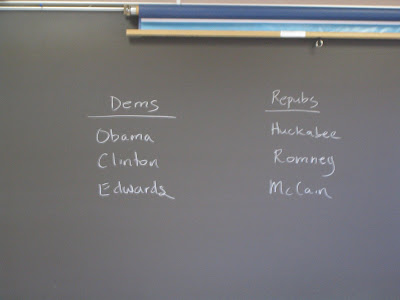 Dems
Obama
Clinton
Edwards
Repubs
Huckabee
Romney
McCain